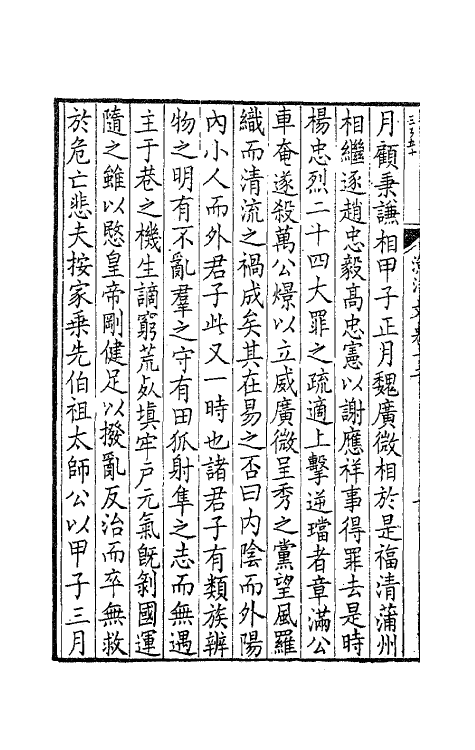 月顧秉謙相甲子正月魏廣微相於是福清蒲州
相繼逐趙忠毅高忠憲以謝應祥事得罪去是時
楊忠烈二十四大罪之疏適上擊逆璫者章滿公
車奄遂殺萬公燝以立威廣微呈秀之黨望風羅
織而清流之禍成矣其在易之否曰內陰而外陽
內小人而外君子此又一時也諸君子有類族辨
物之明有不亂羣之守有田狐射隼之志而無遇
主于巷之機生謫窮荒歘塡牢戶元氣旣剝國運
隨之雖以愍皇帝剛健足以撥亂反治而卒無救
於危亡悲夫按家乘先伯祖太師公以甲子三月